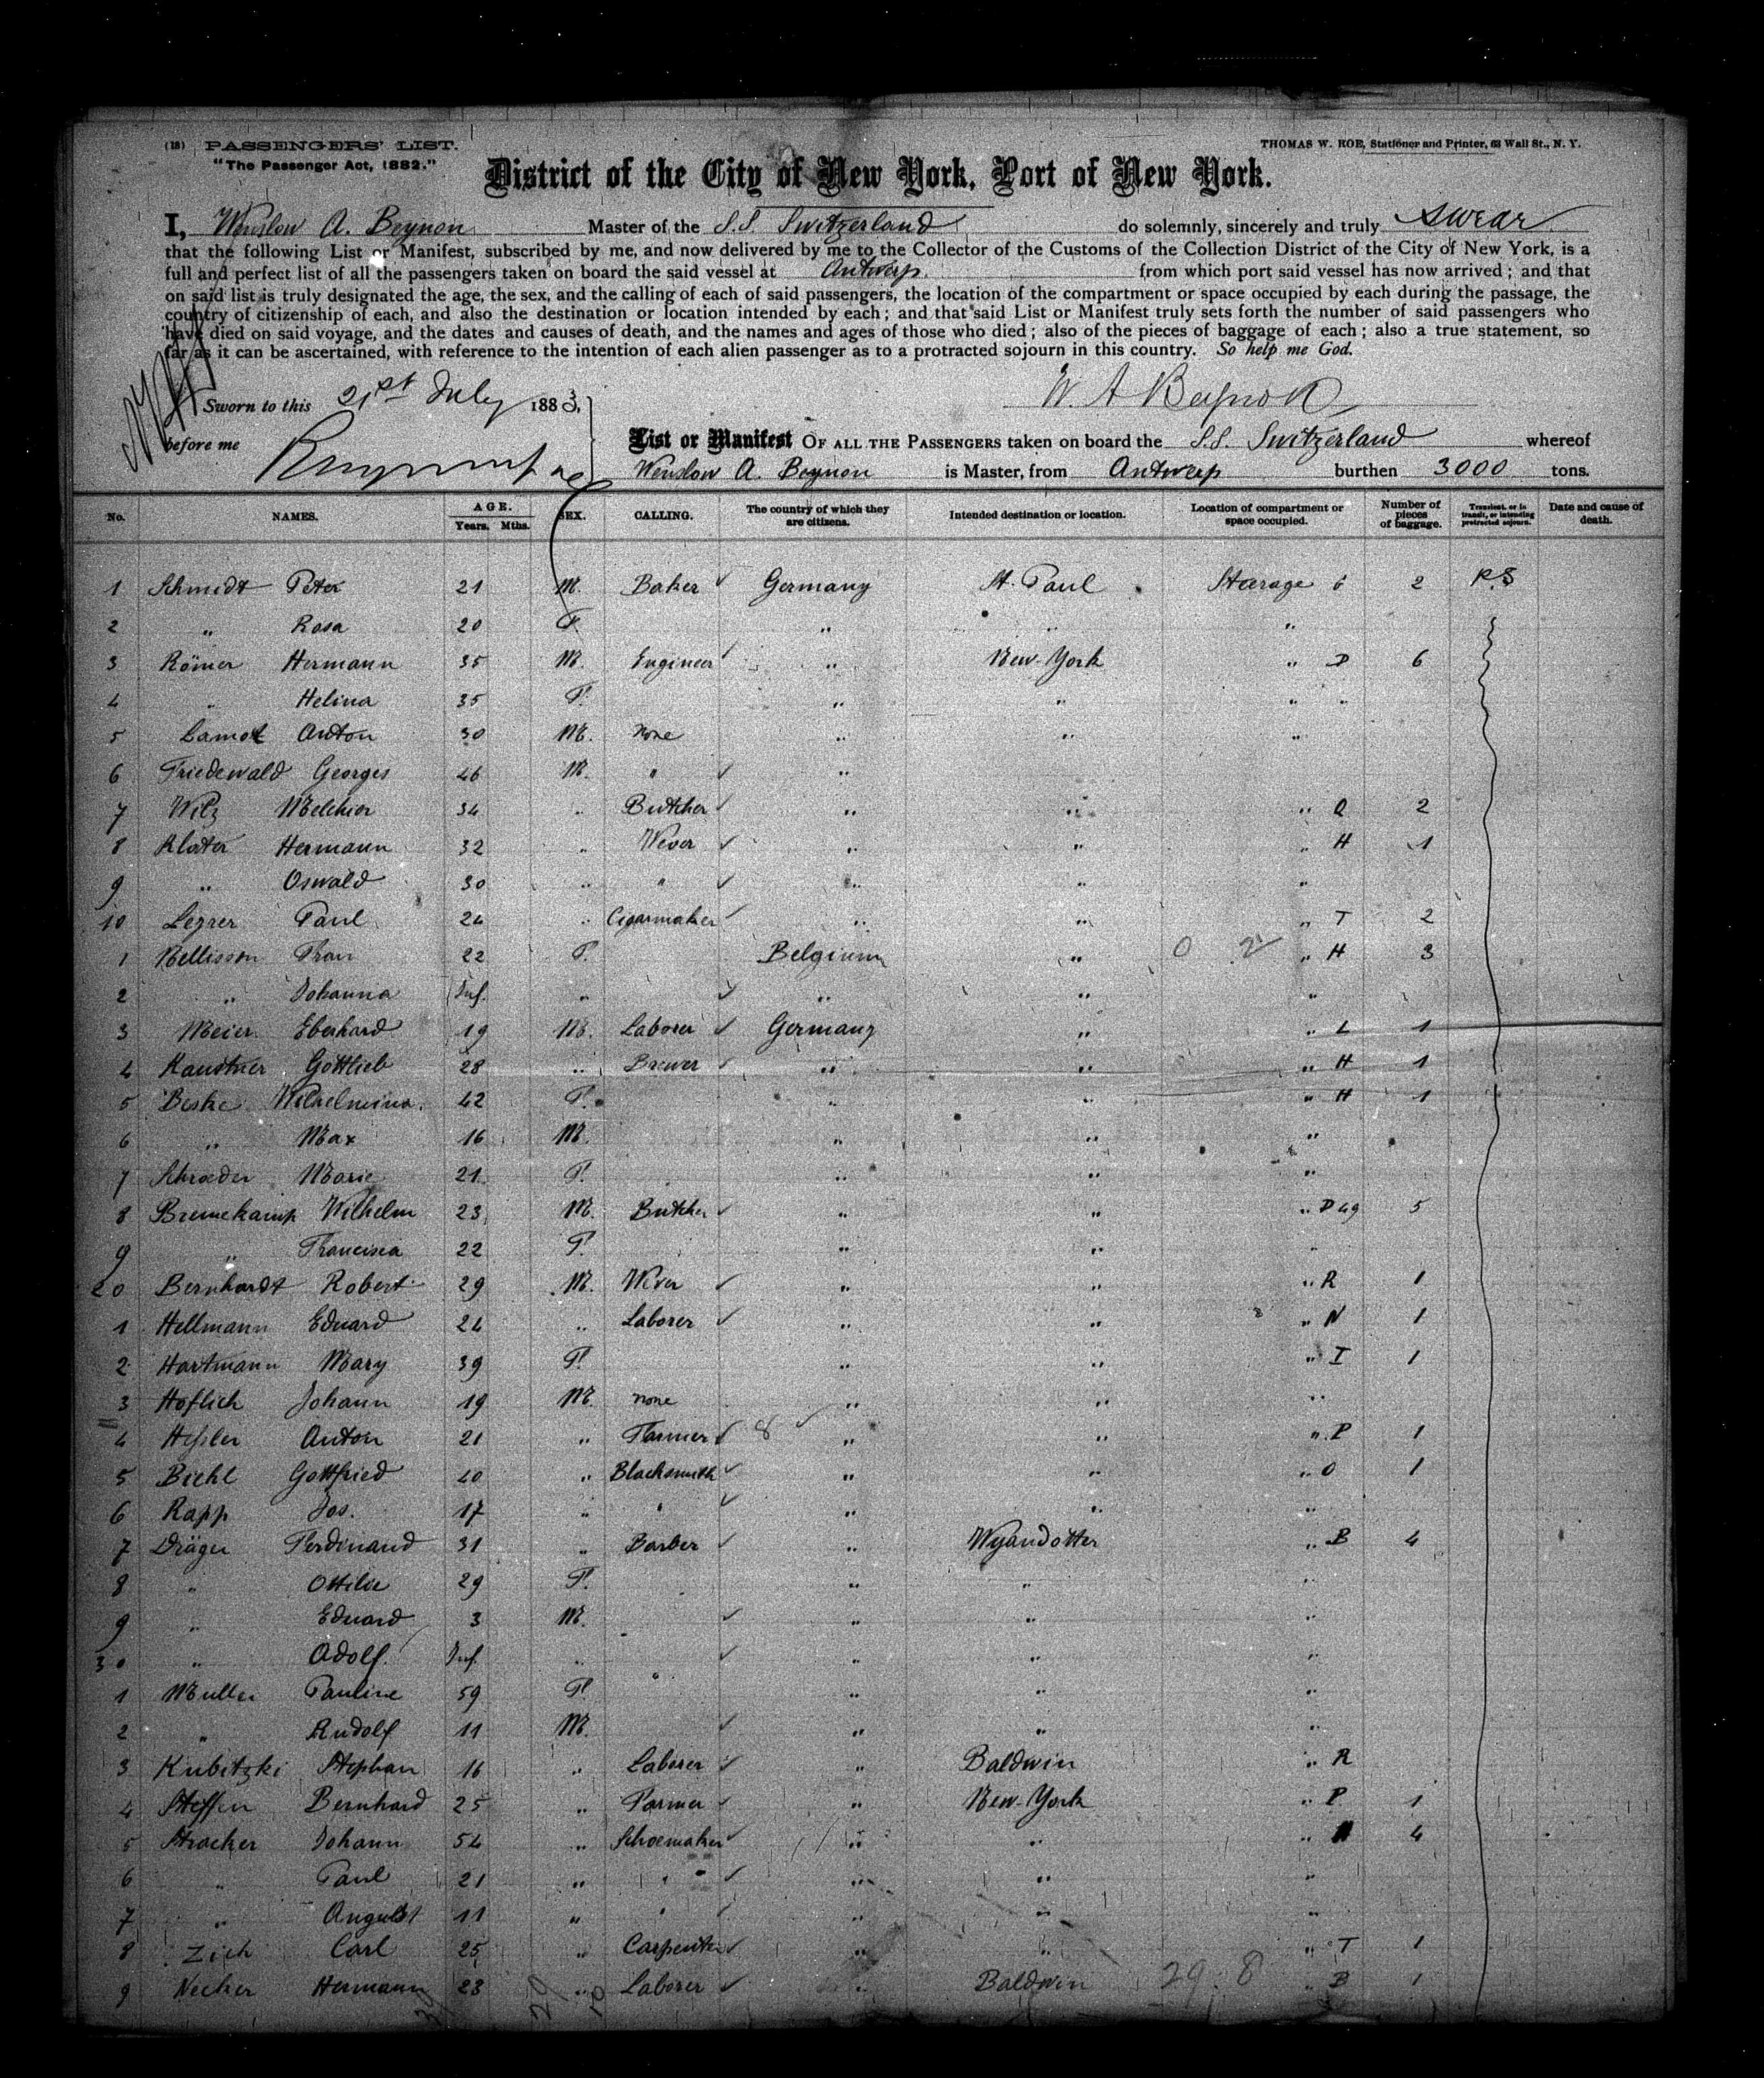 (18) PASSENGERS' LIST.
"The Passenger Act, 1882."
THOMAS W. ROE, Stationer and Printer, 63 Wall St., N. Y.
District of the City of New York, Port of New York.
I, Winslow A. Beynon Master of the S.S. Switzerland do solemnly, sincerely and truly swear
that the following List or Manifest, subscribed by me, and now delivered by me to the Collector of the Customs of the Collection District of the City of New York, is a
full and perfect list of all the passengers taken on board the said vessel at Antwerp from which port said vessel has now arrived; and that
on said list is truly designated the age, the sex, and the calling of each of said passengers, the location of the compartment or space occupied by each during the passage, the
country of citizenship of each, and also the destination or location intended by each; and that said List or Manifest truly sets forth the number of said passengers who
have died on said voyage, and the dates and causes of death, and the names and ages of those who died; also of the pieces of baggage of each; also a true statement, so
far as it can be ascertained, with reference to the intention of each alien passenger as to a protracted sojourn in this country. So help me God.
Sworn to this 21st July 1883, W. A Beynon
before me
List or Manifest OF ALL THE PASSENGERS taken on board the S.S. Switzerland whereof
Winslow A. Beynon is Master, from Antwerp burthen 3000 tons.
No. NAMES. AGE. Years. Mths. SEX. CALLING. The country of which they are citizens. Intended destination or location. Location of compartment or space occupied. Number of pieces of baggage. Transient, or in transit, or intending protracted sojourn. Date and cause of death.
1 Schmidt Peter 21 M. Baker Germany St. Paul Steerage 2 P.S
2 " Rosa 20 F. " " "
3 Römer Hermann 35 M. Engineer " New-York " D 6
4 " Helina 35 F. " " " "
5 Lamot Anton 30 M. None " " "
6 Friedewald Georges 46 M. " "
7 Wilz Melchior 34 " Butcher " " " Q 2
8 Kloter Hermann 32 " Wever " " " H 1
9 " Oswald 30 " " " " "
10 Legrer Paul 24 " Cigarmaker " " " T 2
1 Bellisson Fran 22 F. Belgium " " H 3
2 " Johanna Inf. " " " "
3 Meier Eberhard 19 M. Laborer Germany " " L 1
4 Kaustner Gottlieb 28 " Brewer " " " H 1
5 Beske Wilhelmina 42 F. " " " H 1
6 " Max 16 M. " " "
7 Schroeder Marie 21 F. " " "
8 Bremekamp Wilhelm 23 M. Butcher " " " D 49 5
9 " Francisca 22 F. " " "
20 Bernhardt Robert 29 M. Wever " " " R 1
1 Hellmann Eduard 24 " Laborer " " " N 1
2 Hartmann Mary 39 F. " " " I 1
3 Hoflich Johann 19 M. none " " "
4 Hesler Anton 21 " Farmer " " " P 1
5 Biehl Gottfried 40 " Blacksmith " " " O 1
6 Rapp Jos. 17 " " " " "
7 Dräger Ferdinand 31 " Barber " Wyandotter " B 4
8 " Ottilie 29 F. " " "
9 " Eduard 3 M. " " "
30 " Adolf Inf. " " " "
1 Muller Pauline 59 F. " " " "
2 " Rudolf 11 M. " "  "
3 Kubitzki Stephan 16 " Laborer " Baldwin " R
4 Steffen Bernhard 25 " Farmer " New-York " P 1
5 Stracker Johann 54 " Schoemaker " " " 4
6 " Paul 21 " " " " "
7 " August 11 " " " " "
8 Zich Carl 25 " Carpenter " " " T 1
9 Necker Hermann 23 " Laborer " Baldwin 29. 8 " B 1